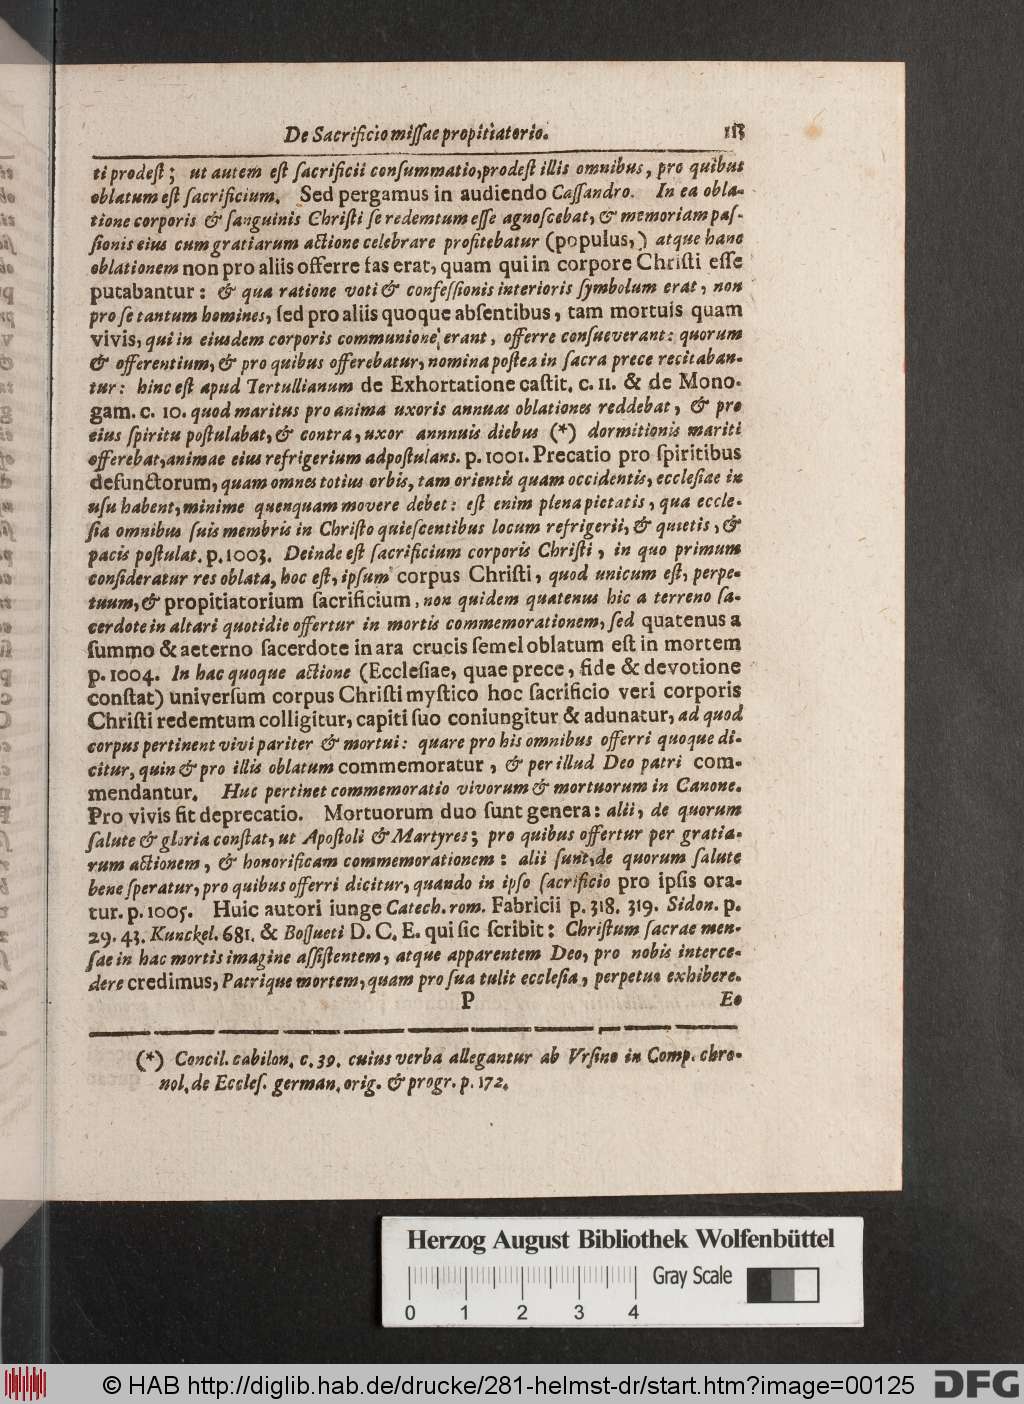 De Sacrificio missae propitiatorio. 113
ti prodest; ut autem est sacrificii consummatio, prodest illis omnibus, pro quibus
oblatum est sacrificium. Sed pergamus in audiendo Cassandro. In ea obla-
tione corporis & sanguinis Christi se redemtum esse agnoscebat, & memoriam pas-
sionis eius cum gratiarum actione celebrare profitebatur (populus,) atque hanc
oblationem non pro aliis offerre fas erat, quam qui in corpore Christi esse
putabantur: & qua ratione voti & confessionis interioris symbolum erat, non
pro se tantum homines, sed pro aliis quoque absentibus, tam mortuis quam
vivis, qui in eiusdem corporis communione erant, offerre consueverant: quorum
& offerentium, & pro quibus offerebatur, nomina postea in sacra prece recitaban-
tur: hinc est apud Tertullianum de Exhortatione castit. c. 11. & de Mono-
gam. c. 10. quod maritus pro anima uxoris annuas oblationes reddebat, & pro
eius spiritu postulabat, & contra, uxor annnuis diebus (*) dormitionis mariti
offerebat, animae eius refrigerium adpostulans. p. 1001. Precatio pro spiritibus
defunctorum, quam omnes totius orbis, tam orientis quam occidentis, ecclesiae in
usu habent, minime quenquam movere debet: est enim plena pietatis, qua eccle-
sia omnibus suis membris in Christo quiescentibus locum refrigerii, & quietis, &
pacis postulat. p. 1003. Deinde est sacrificium corporis Christi, in quo primum
consideratur res oblata, hoc est, ipsum corpus Christi, quod unicum est, perpe-
tuum, & propitiatorium sacrificium, non quidem quatenus hic a terreno sa-
cerdote in altari quotidie offertur in mortis commemorationem, sed quatenus a
summo & aeterno sacerdote in ara crucis semel oblatum est in mortem
p. 1004. In hac quoque actione (Ecclesiae, quae prece, fide & devotione
constat) universum corpus Christi mystico hoc sacrificio veri corporis
Christi redemtum colligitur, capiti suo coniungitur & adunatur, ad quod
corpus pertinent vivi pariter & mortui: quare pro his omnibus offerri quoque di-
citur, quin & pro illis oblatum commemoratur, & per illud Deo patri com-
mendantur. Huc pertinet commemoratio vivorum & mortuorum in Canone.
Pro vivis fit deprecatio. Mortuorum duo sunt genera: alii, de quorum
salute & gloria constat, ut Apostoli & Martyres; pro quibus offertur per gratia-
rum actionem, & honorificam commemorationem: alii sunt, de quorum salute
bene speratur, pro quibus offerri dicitur, quando in ipso sacrificio pro ipsis ora-
tur. p. 1005. Huic autori iunge Catech. rom. Fabricii p. 318. 319. Sidon. p.
29. 43. Kunckel. 681. & Bossueti D. C. E. qui sic scribit: Christum sacrae men-
sae in hac mortis imagine assistentem, atque apparentem Deo, pro nobis interce-
dere credimus, Patrique mortem, quam pro sua tulit ecclesia, perpetue exhibere.
P Eo
(*) Concil. cabilon. c. 39. cuius verba allegantur ab Ursino in Comp. chro-
nol. de Eccles. german. orig. & progr. p. 172.
Herzog August Bibliothek Wolfenbüttel
Gray Scale
0 1 2 3 4
© HAB http://diglib.hab.de/drucke/281-helmst-dr/start.htm?image=00125 DFG